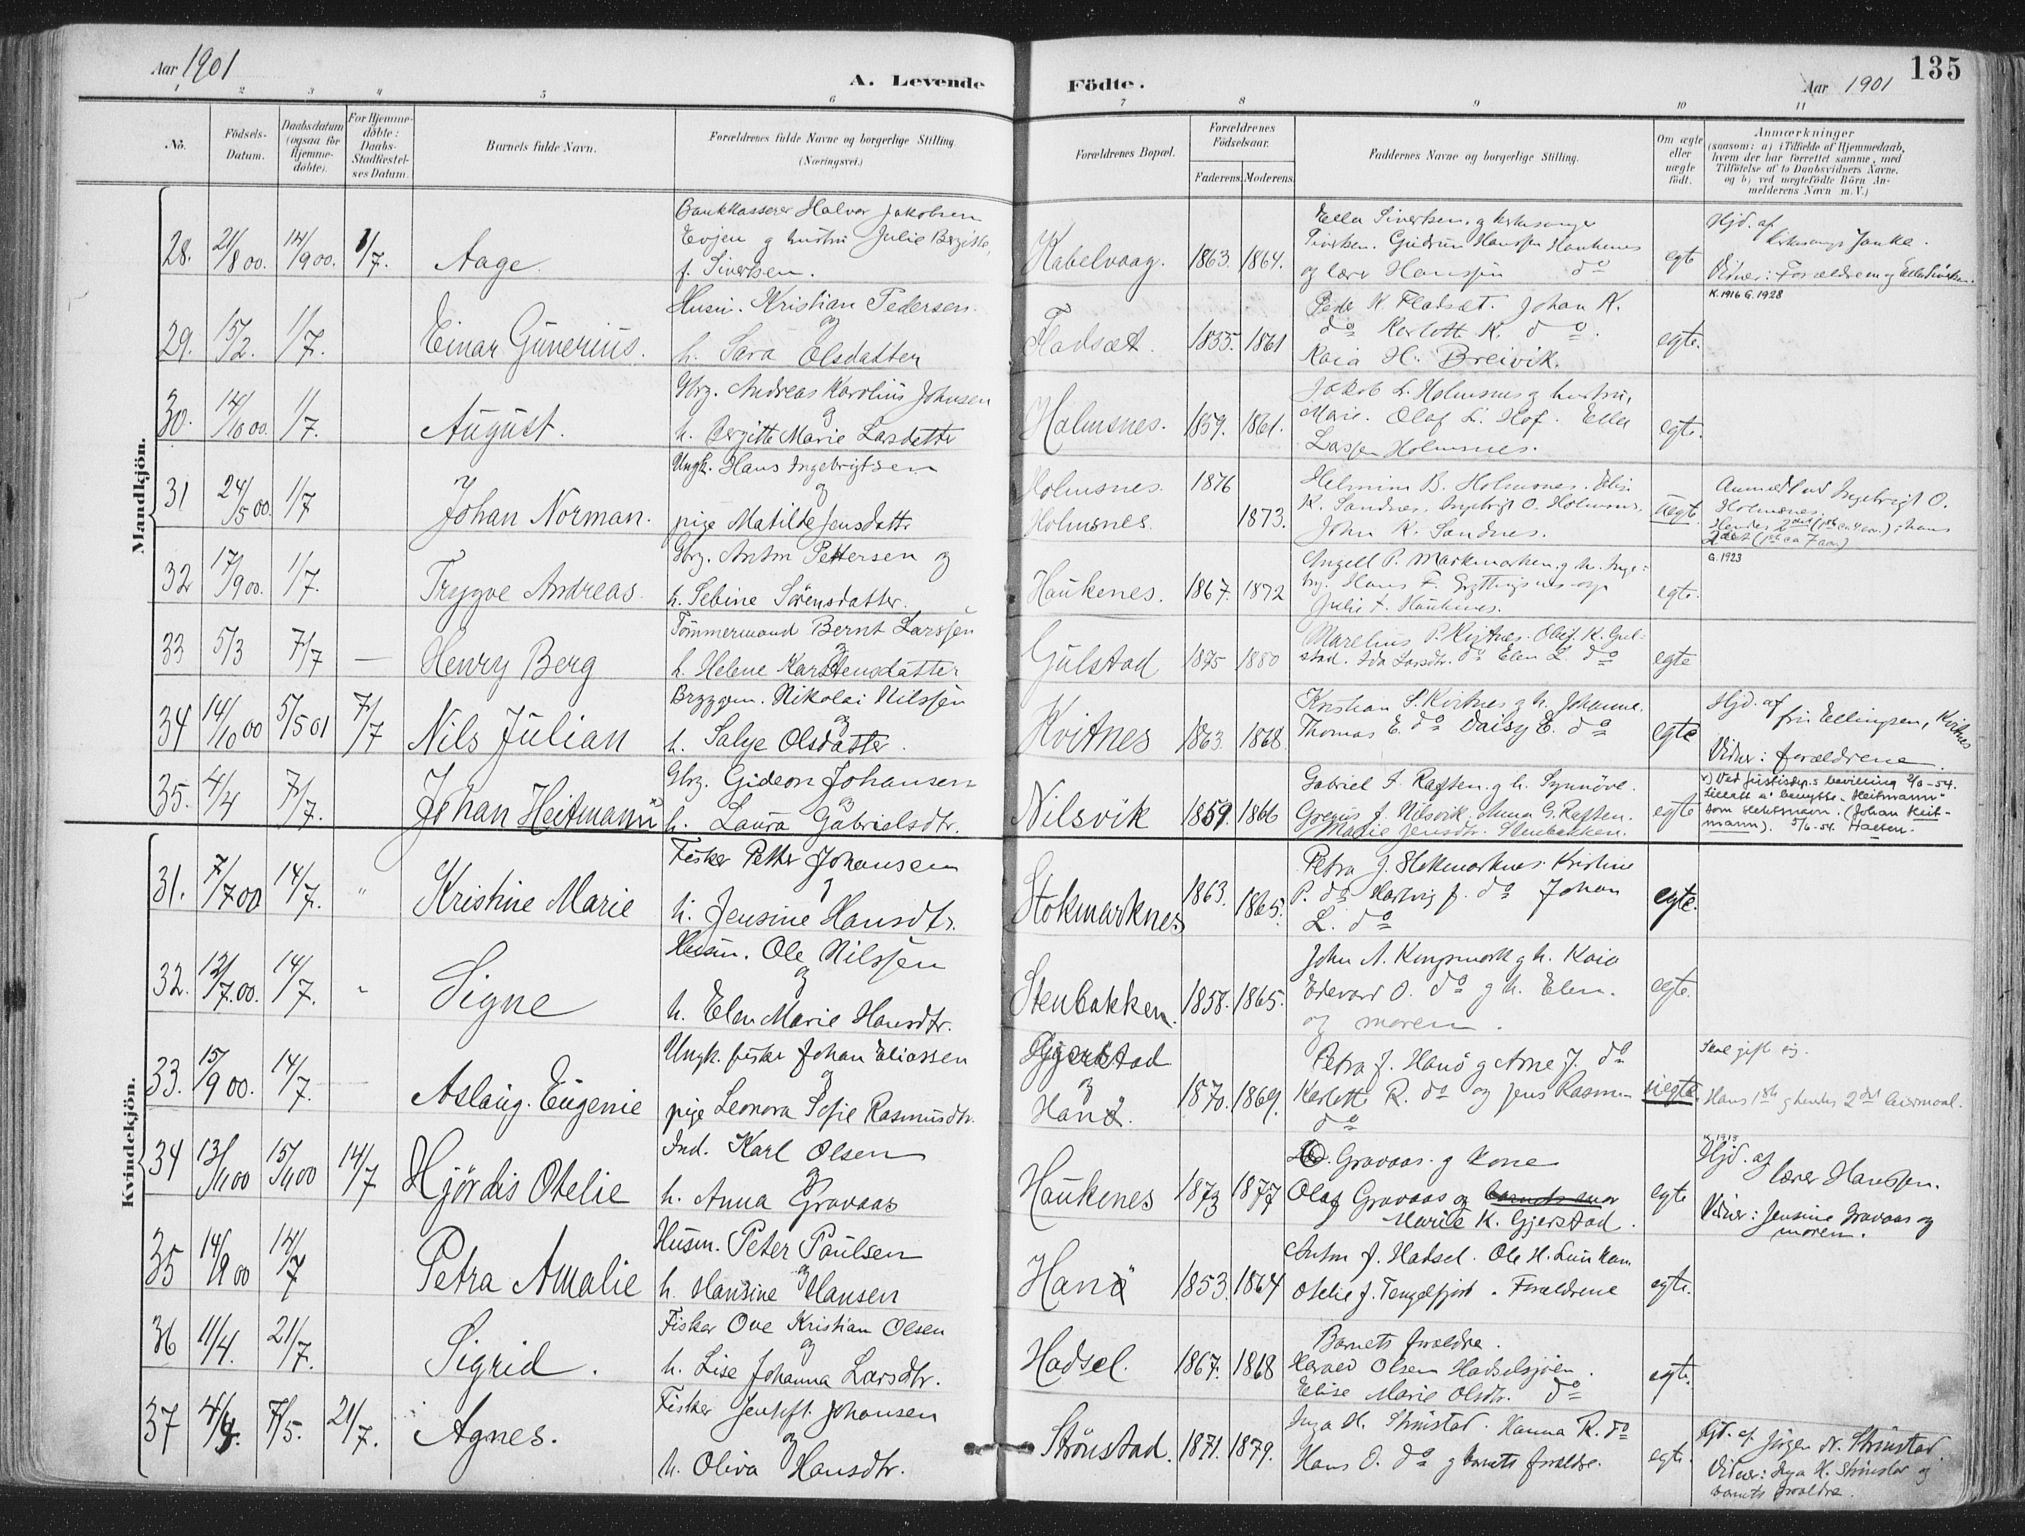 Aar 1901
A. Levende Födte.
Aar 1901
135
1 2 3 4 5 6 7 8 9 10 11
No.
Födsels-Datum.
Daabsdatum (ogsaa for Hjemme-döbte).
For Hjemme-döbte: Daabs-Stadfæstel-ses Datum.
Barnets fulde Navn.
Forældrenes fulde Navne og borgerlige Stilling (Næringsvei.)
Forældrenes Bopæl.
Forældrenes Födselsaar.
Faderens. Moderens.
Faddernes Navne og borgerlige Stilling.
Om ægte eller uægte födt.
Anmærkninger
(saasom: a) i Tilfælde af Hjemmedaab,
hvem der har forrettet samme, med
Tilföielse af to Daabsvidners Navne.
og b) ved uægtefödte Börn An-
melderens Navn m. V.)
Mandkjön.
28. 21/8 00. 14/9 00. 1/7. Aage.
Bankkasserer Halvor Jakobsen
Evjen og hustru Julie Bergitte,
f. Sivertsen.
Kabelvaag. 1863. 1864.
Ella Sivertsen, g kirkesanger
Sivertsen. Gudrun Hanssen Haukenes
og lærer Hanssen do
egte
Hjd. af
kirkesanger Janke.
Vidner: Forældrene og Ella Sivertsen.
29. 15/2. 1/7. Einar Gunerius.
Husm. Kristian Pedersen
og
h. Sara Olsdatter
Fladsæt. 1855. 1861
Peder K. Fladsæt. Johan K.
do Karlott K. do.
Kaia H. Breivik.
egte.
K. 1916 G. 1928
30. 14/10 00. 1/7. August.
Gbrg. Andreas Karolius Johnsen
og
h. Bergitte Marie Larsdatter
Holmsnes. 1859. 1861.
Jakob L. Holmsnes g hustru,
Marie. Olaf L. Hof. Ella
Larsen Holmsnes.
egte.
31 24/5 00. 1/7 Johan Norman.
Ungk. Hans Ingebrigtsen
og
pige Matilde Jensdatter
Holmsnes. 1876
Holmsnes. 1873.
Helmine B. Holmsnes. Elise
K. Sandnes, Ingebrigt O. Holmsnes,
John K. Sandnes.
uegte.
Anmeldt ved Ingebrigt O.
Holmsnes.
32 17/9 00. 1/7. Trygve Andreas.
Gbrg. Anton Pettersen og
h. Sebine Sörensdatter.
Haukenes. 1867. 1872
Julie F. Haukenes.
egte.
G. 1923
33 5/3 7/7 — Henry Berg
Tömmermand Bernt Larssen
og
h. Helene Karstensdatter
Gulstad 1875 1880
Marelius P. Kvitnes. Oluf K. Gul-
stad. Ida Larsdtr. do Elen L. do
egte
34 14/10 00 5/5 01 7/7 Nils Julian
Bryggem. Nikolai Nilssen
og
h. Salye Olsdatter.
Kvitnes 1863. 1868.
Kristian S. Kvitnes g h. Johanne.
Thomas E. do Daisy E. do
egte
Hjd. af
fru Ellingsen, Kvitnes
Vidner: forældrene.
35. 4/4 7/7. Johan Heitmann x)
Gbrg. Gideon Johansen
og
h. Laura Gabrielsdtr.
Nilsvik 1859. 1866
Gabriel F. Raften. g h. Synnöve.
Gregus J. Nilsvik. Anna G. Raften.
Marie Jensdtr. Stenbakken.
egte
x) Ved Justisdep.s bevilling 2/6-54.
tillatt å benytte „Heitmann"
som slektsnavn. (Johan Heit-
mann). 5/6-54. Halsen.
Kvindekjön.
31. 7/7 00 14/7. " Kristine Marie
Fisker Petter Johansen
og
h. Jensine Hansdtr.
Stokmarknes 1863. 1865.
Petra J. Stokmarknes. Kristine
P. do Hartvig J. do Johan
L. do
egte.
32. 12/7.00. 14/7. " Signe
Husm. Ole Nilssen
og
h. Elen Marie Hansdtr.
Stenbakken. 1858. 1865.
John A. Kongsmark g h. Kaia
Edevard O. do g h. Elen.
og moren.
egte.
33. 15/9 00. 14/7. Aslaug Eugenie
Ungk. fisker Johan Eliassen
og
pige Leonora Sofie Rasmusdtr.
Gjerstad
og
Hanö. 1870. 1869.
Petra J. Hanö g Arne J. do
Karlotte R. do og Jens Rasmus
do
uegte.
Skal gifte sig.
Hans 1ste g hendes 2det leiermaal.
34 13/11 00 15/11 00 14/7 Hjördis Otelie
Ind. Karl Olsen
og
h. Anna Gravaas
Haukenes 1873 1877
O. Gravaas. g kone
Olaf Gravaas og barnets mor
Marie K. Gjerstad.
egte
K. 1915
Hjd. af
lærer Hanssen.
Vidner: Jensine Gravaas og
moren.
35 14/9 00 14/7 Petra Amalie
Husm. Peter Paulsen
og
h. Hansine Hansen
Hanö 1853. 1864
Anton J. Hadsel. Ole H. Lunkan
Otelie J. Tengelfjord. Forældrene
egte.
36 11/4. 21/7. Sigrid.
Fisker Ove Kristian Olsen
og
h. Lise Johanna Larsdtr.
Hadsel. 1867. 1868
Barnets forældre.
Harald Olsen Hadselsjöen.
Elise Marie Olsdtr. do
egte.
37 4/4. 7/5. 21/7. Agnes.
Fisker Jentoft Johansen
og
h. Oliva Hansdtr.
Strönstad. 1871. 1879.
Inga H. Strönstad. Hanna R. do
Hans O. do g barnets forældre.
egte.
Hjd. af Jörgen N. Strönstad
Vidner: Inga H. Strönstad og
barnets forældre.